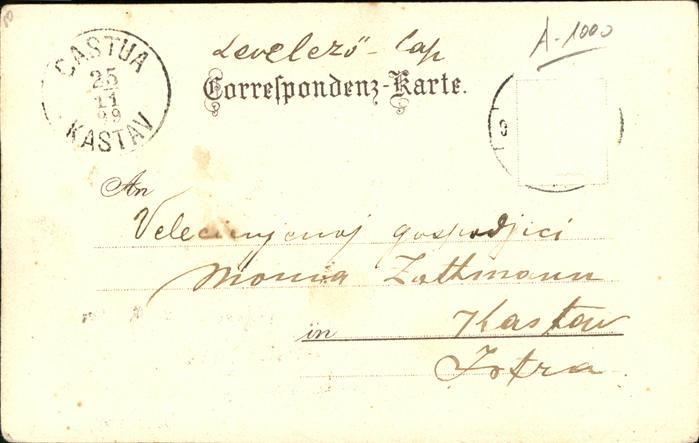 CASTUA
25
11
99
KASTAV
Levelező-lap
A-1000
Correſpondenz-Karte.
An
Velecijenjenoj gospodjici
Zathmann
in Kastav
Istra